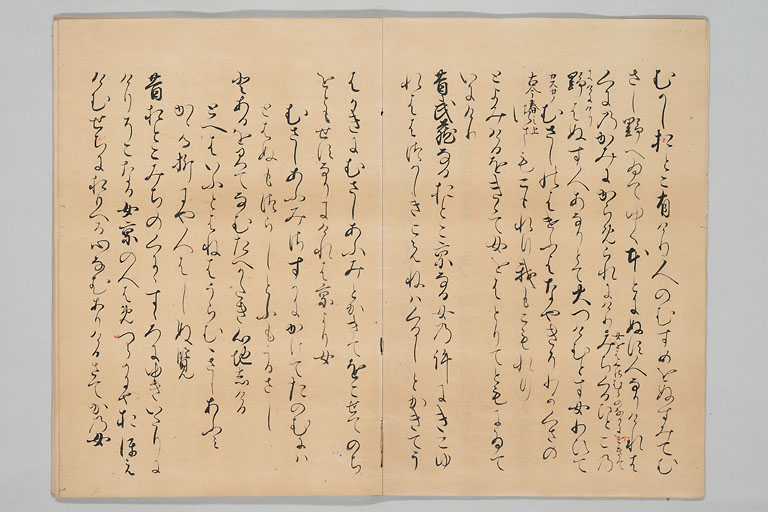 むかしおとこ有けり人のむすめをぬすみてむ
さし野へゐてゆくほとにぬす人なりけれは
くにのかみにからめられにけりみちくるひとこの
野はぬす人あなりとて火つけむとす女わひて
古今春上
むさし野はけふはなやきそわかくさの
つまもこもれり我もこもれり
とよみけるをきゝて女をはとりてともにゐて
いにけり
昔武蔵なるおとこ京なる女の許にきこゆ
れははつかしきこえねはくるしとかきてう
はかきにむさしあふみとかきてをこせてのち
をともせすなりにけれは京より女
むさしあふみさすかにかけてたのむには
とはぬもつらしとふもうるさし
とあるを見てなむたへかたき心地しける
とへはいふとはねはうらむむさしあふみ
かゝる折にや人はしぬ覧
昔おとこみちのくにすゝろにゆきいたりに
けりそこなる女京の人はめつらかにやおほえ
けむせちにおもへる心なむありけるさてかの女